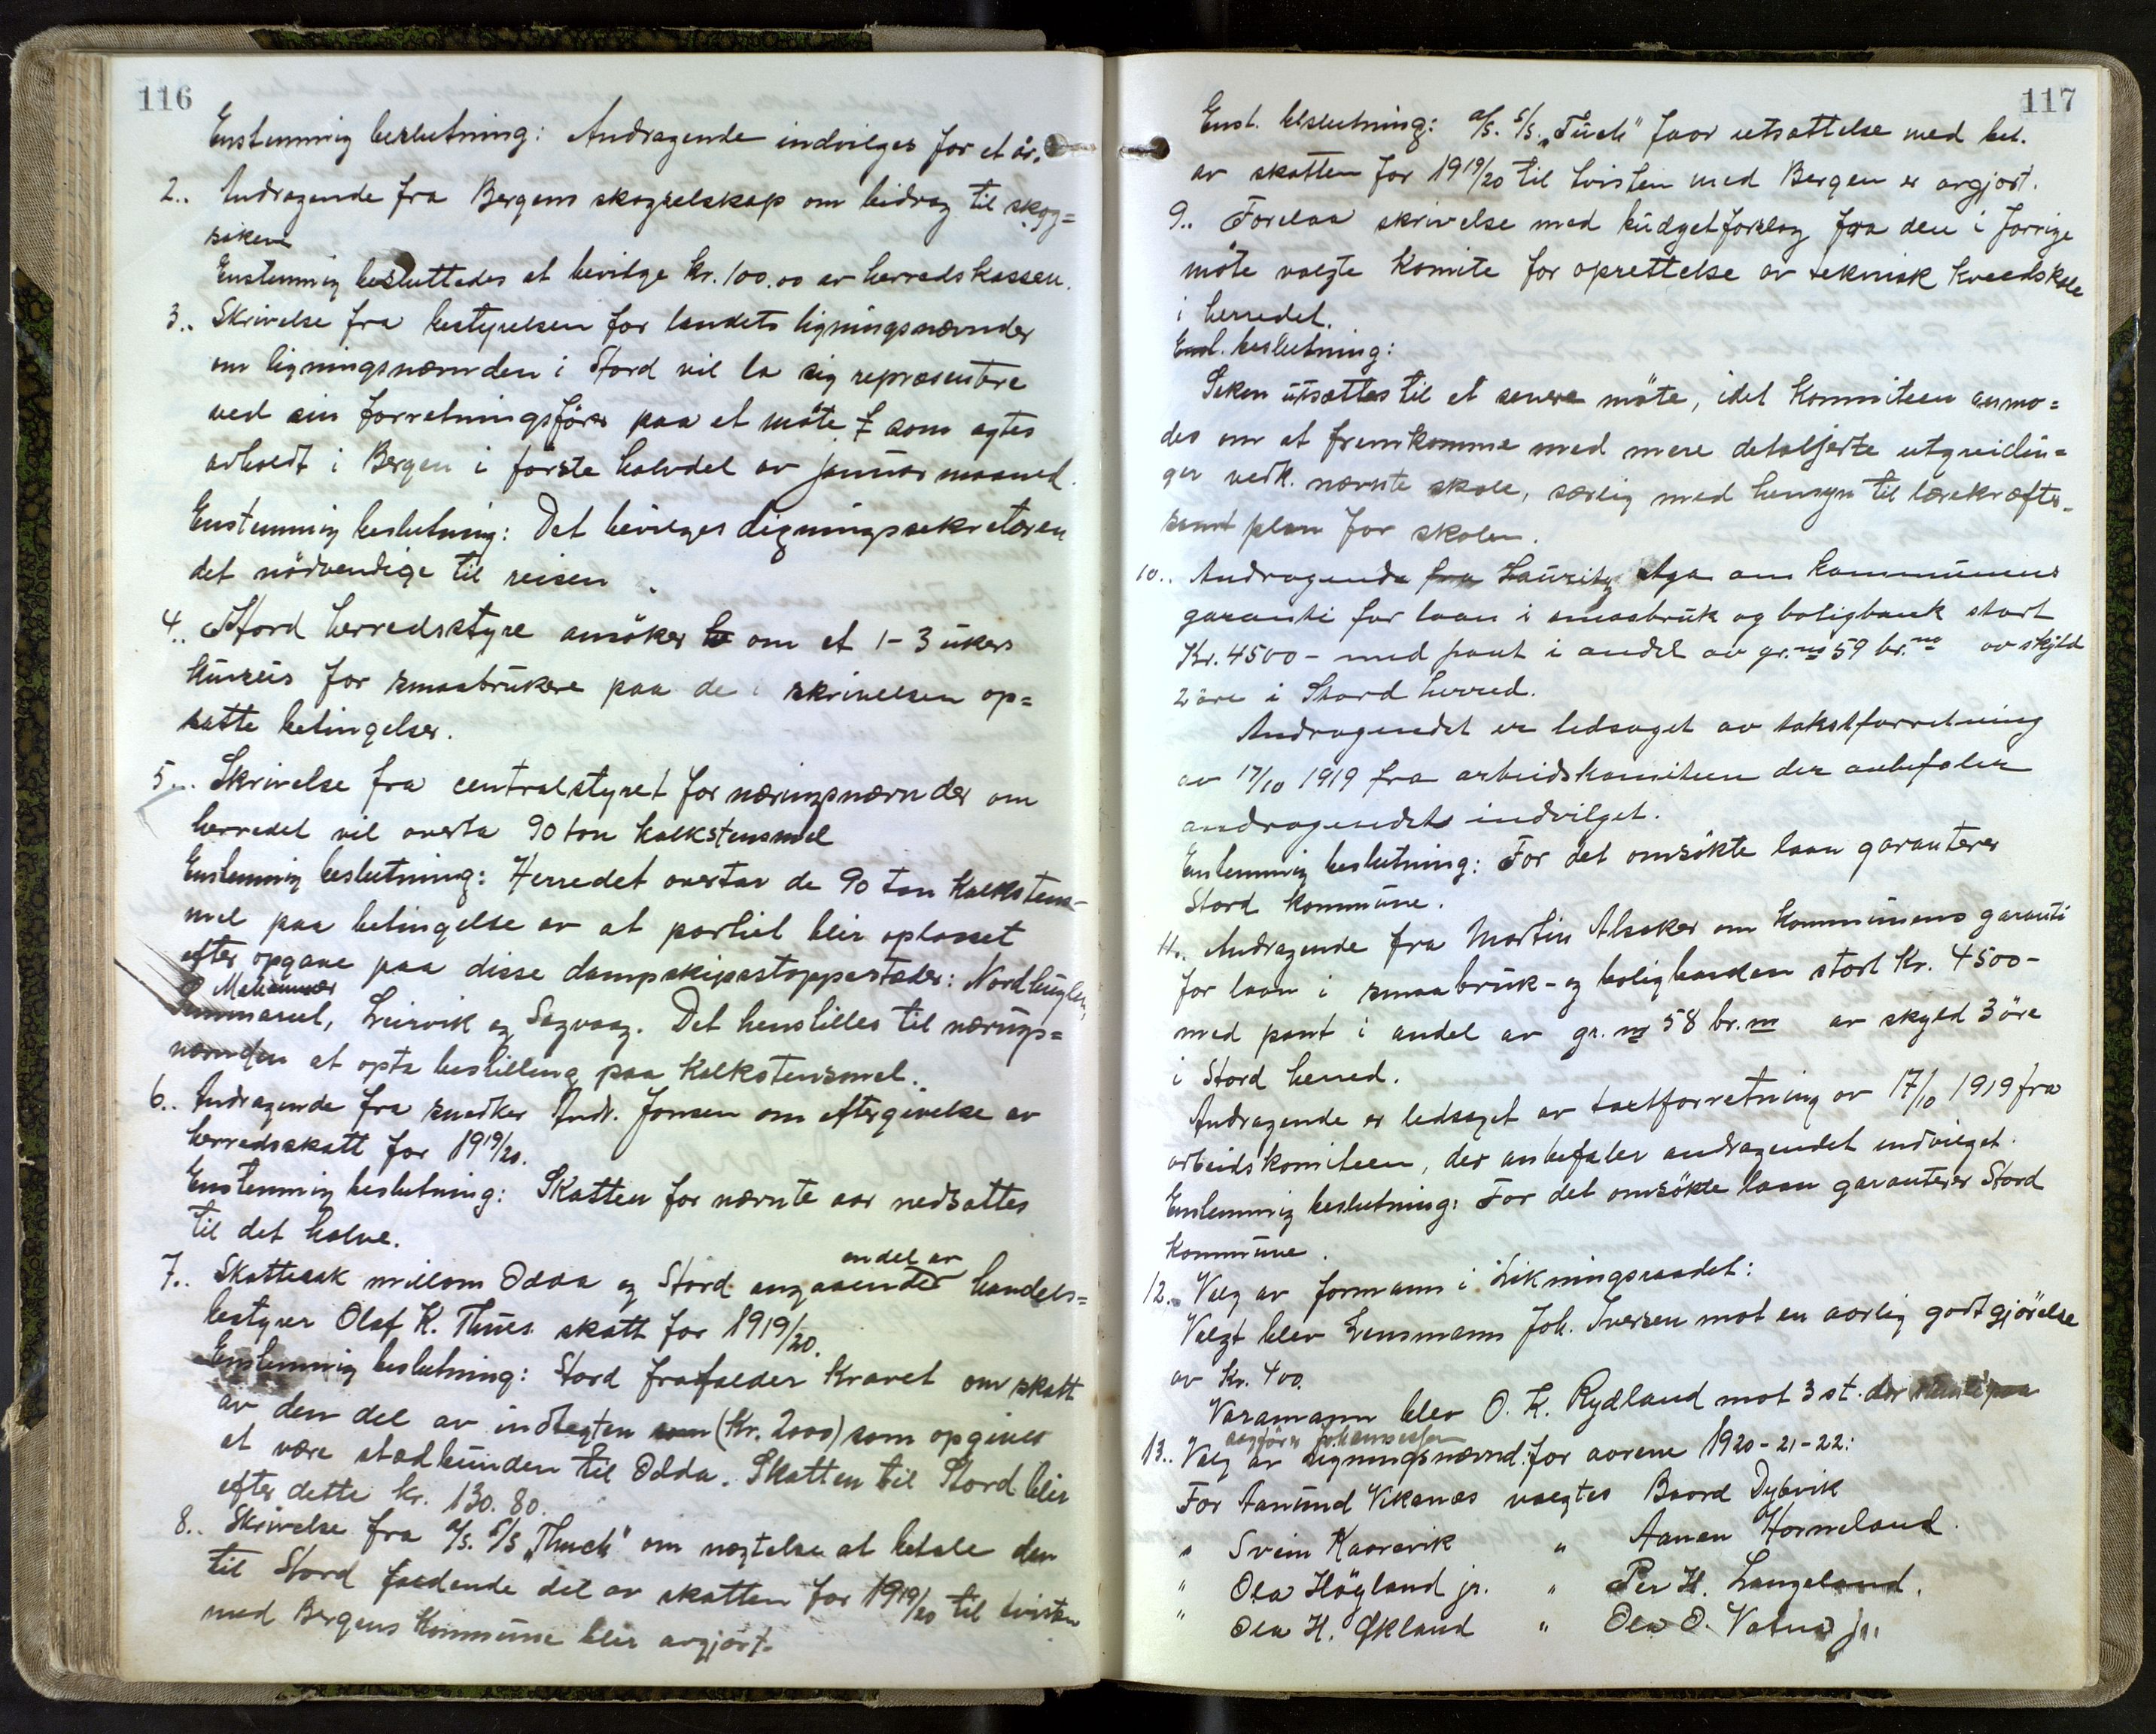 116
Enstemmig beslutning: Andragende indvilges for et år.
2.. Andragende fra Bergens skogselskap om bidrag til skog=
saken
Enstemmig besluttedes at bevilge kr. 100.00 av herredskassen.
3.. Skrivelse fra bestyrelsen for landets ligningsnævnder
om ligningsnævnden i Stord vil la sig repræsentere
ved sin forretningsfører paa et møte som agtes
avholdt i Bergen i første halvdel av januar maaned.
Enstemmig beslutning: Det bevilges ligningssekretæren
det nödvendige til reisen.
4.. Stord herredsstyre ansöker om et 1-3 ukers
kursus for smaabrukere paa de i skrivelsen op=
satte betingelser.
5.. Skrivelse fra centralstyret for næringsnævnder om
herredet vil overta 90 ton kalkstensmel
Enstemmig beslutning: Herredet overtar de 90 ton kalkstens-
mel paa betingelse av at partiet blir oplosset
efter opgave paa disse dampskipsstoppesteder: Nordhuglen,
Leirvik og Sagvaag. Det henstilles til nærings=
nævnden at opta bestilling paa kalkstensmel.
6.. Andragende fra snedker Andr. Jonsen om eftergivelse av
herredsskatt for 1919/20.
Enstemmig beslutning: Skatten for nævnte aar nedsættes
til det halve.
7.. Skattesak millom Odda og Stord angaaende endel av handels=
bestyrer Olaf K. Thues skatt for 1919/20.
Enstemmig beslutning: Stord frafalder kravet om skatt
av den del av indtægten som (Kr. 2000) som opgives
at være stedbunden til Odda. Skatten til Stord blir
efter dette kr. 130.80.
8.. Skrivelse fra A/S. S/S „Thuck" om nægtelse at betale den
til Stord faldende del av skatten for 1919/20 til tvisten
med Bergens kommune blir avgjort.
117
Enst. beslutning: A/S. S/S. „Tuck" faar utsættelse med bet.
av skatten for 1919/20 til tvisten med Bergen er avgjort.
9.. Forelaa skrivelse med budgetforslag fra den i forrige
möte valgte komite for oprettelse av teknisk kveldskole
i herredet.
Enst. beslutning:
Saken utsættes til et senere möte, idet kommiteen anmo=
des om at fremkomme med mere detaljerte utgreidin=
ger vedk. nævnte skole, særlig med hensyn til lærekræfter
samt plan for skolen.
10.. Andragende fra Lauritz Aga om kommunens
garanti for laan i smaabruk og boligbank stort
Kr. 4500- med pant i andel av gr. no 59 br. no av skyld
2 øre i Stord herred.
Andragendet er ledsaget av takstforretning
av 17/10 1919 fra arbeidskomiteen der anbefaler
andragendet indvilget.
Enstemmig beslutning: For det omsökte laan garanterer
Stord kommune.
11. Andragende fra Martin Alsaker om kommunens garanti
for laan i smaabruk- og boligbanken stort Kr. 4500-
med pant i andel av gr. no 58 br. no av skyld 3 öre
i Stord herred.
Andragende er ledsaget av taxtforretning av 17/10 1919 fra
arbeidskomiteen, der anbefaler andragendet indvilget.
Enstemmig beslutning: For det omsökte laan garanterer Stord
kommune.
12. Valg av formann i Likningsraadet:
Valgt blev Lensmann Joh. Iversen mot en aarlig godtgjörelse
av Kr. 400.
Varamann blev O. K. Rydland mot 3 st. der
sagförer Johannessen
13.. Valg av ligningsnævnd for aarene 1920-21-22:
For Aamund Vikanes valgtes Baard Dybvik
" Svein Kaarevik " Aanen Horneland.
" Ola Høgland jr. " Per H. Langeland.
" Ola H. Økland " Ola O. Vatna jr.